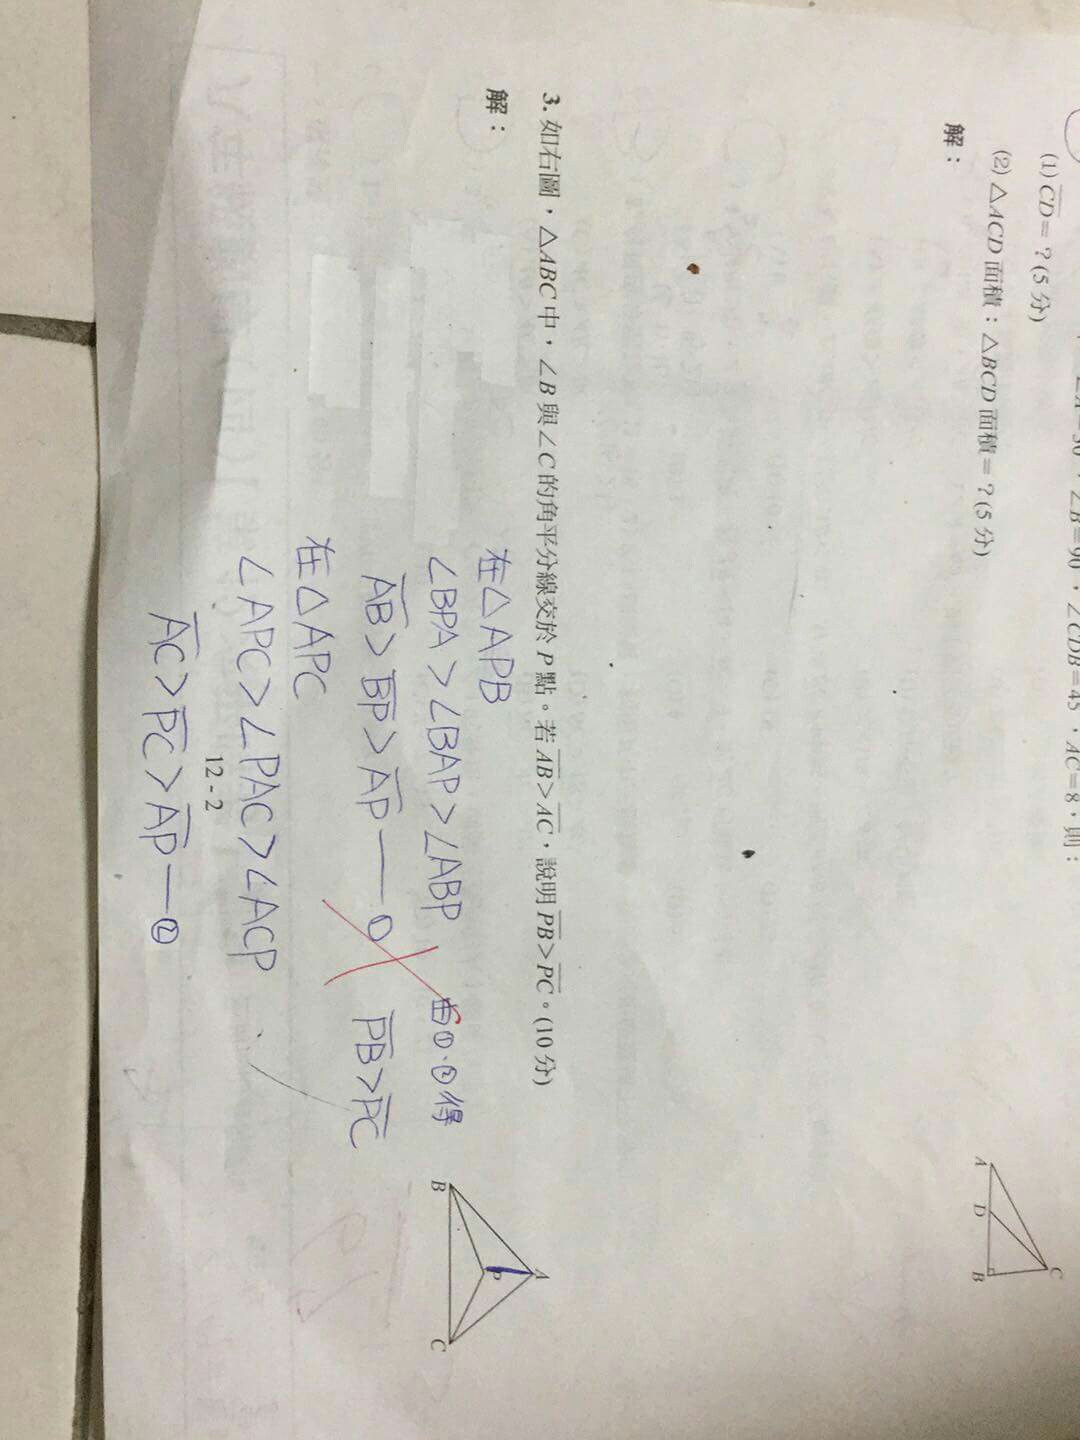 ∠B=90°，∠CDB=45°，AC=8，則：
(1) CD=？(5 分)
(2) △ACD 面積：△BCD 面積=？(5 分)
解：
A
D
B
C
3. 如右圖，△ABC 中，∠B 與∠C 的角平分線交於 P 點。若 AB>AC，說明 PB>PC。(10 分)
解：
在△APB
∠BPA>∠BAP>∠ABP
AB>BP>AP—①
在△APC
∠APC>∠PAC>∠ACP
AC>PC>AP—②
由①.②得
PB>PC
A
P
B
C
12 - 2